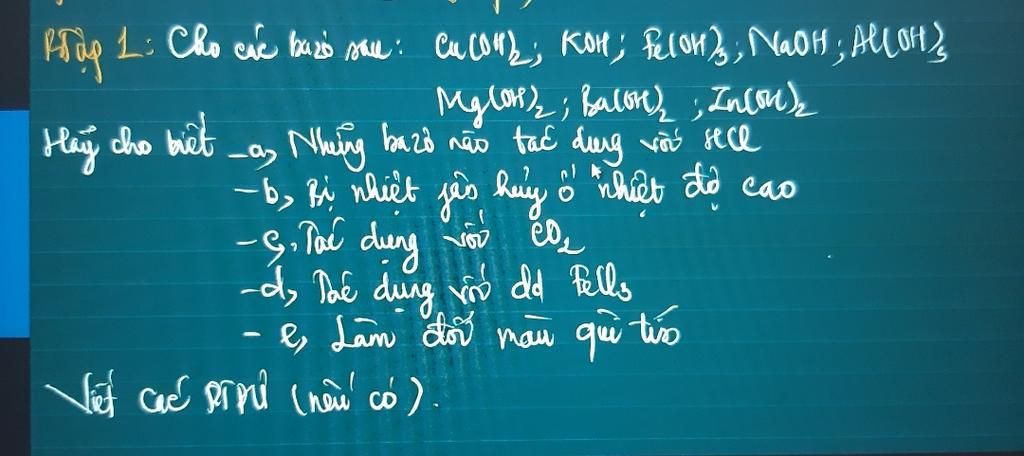 Btập 1: Cho các bazơ sau: Cu(OH)₂; KOH; Fe(OH)₃; NaOH; Al(OH)₃
Mg(OH)₂; Ba(OH)₂; Zn(OH)₂
Hãy cho biết - a, Những bazơ nào tác dụng với HCl
- b, Bị nhiệt phân hủy ở nhiệt độ cao
- c, Tác dụng với CO₂
- d, Tác dụng với dd FeCl₃
- e, Làm đổi màu quì tím
Viết các PTPƯ (nếu có).